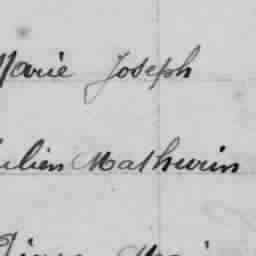 Marie Joseph
Julien Mathurin